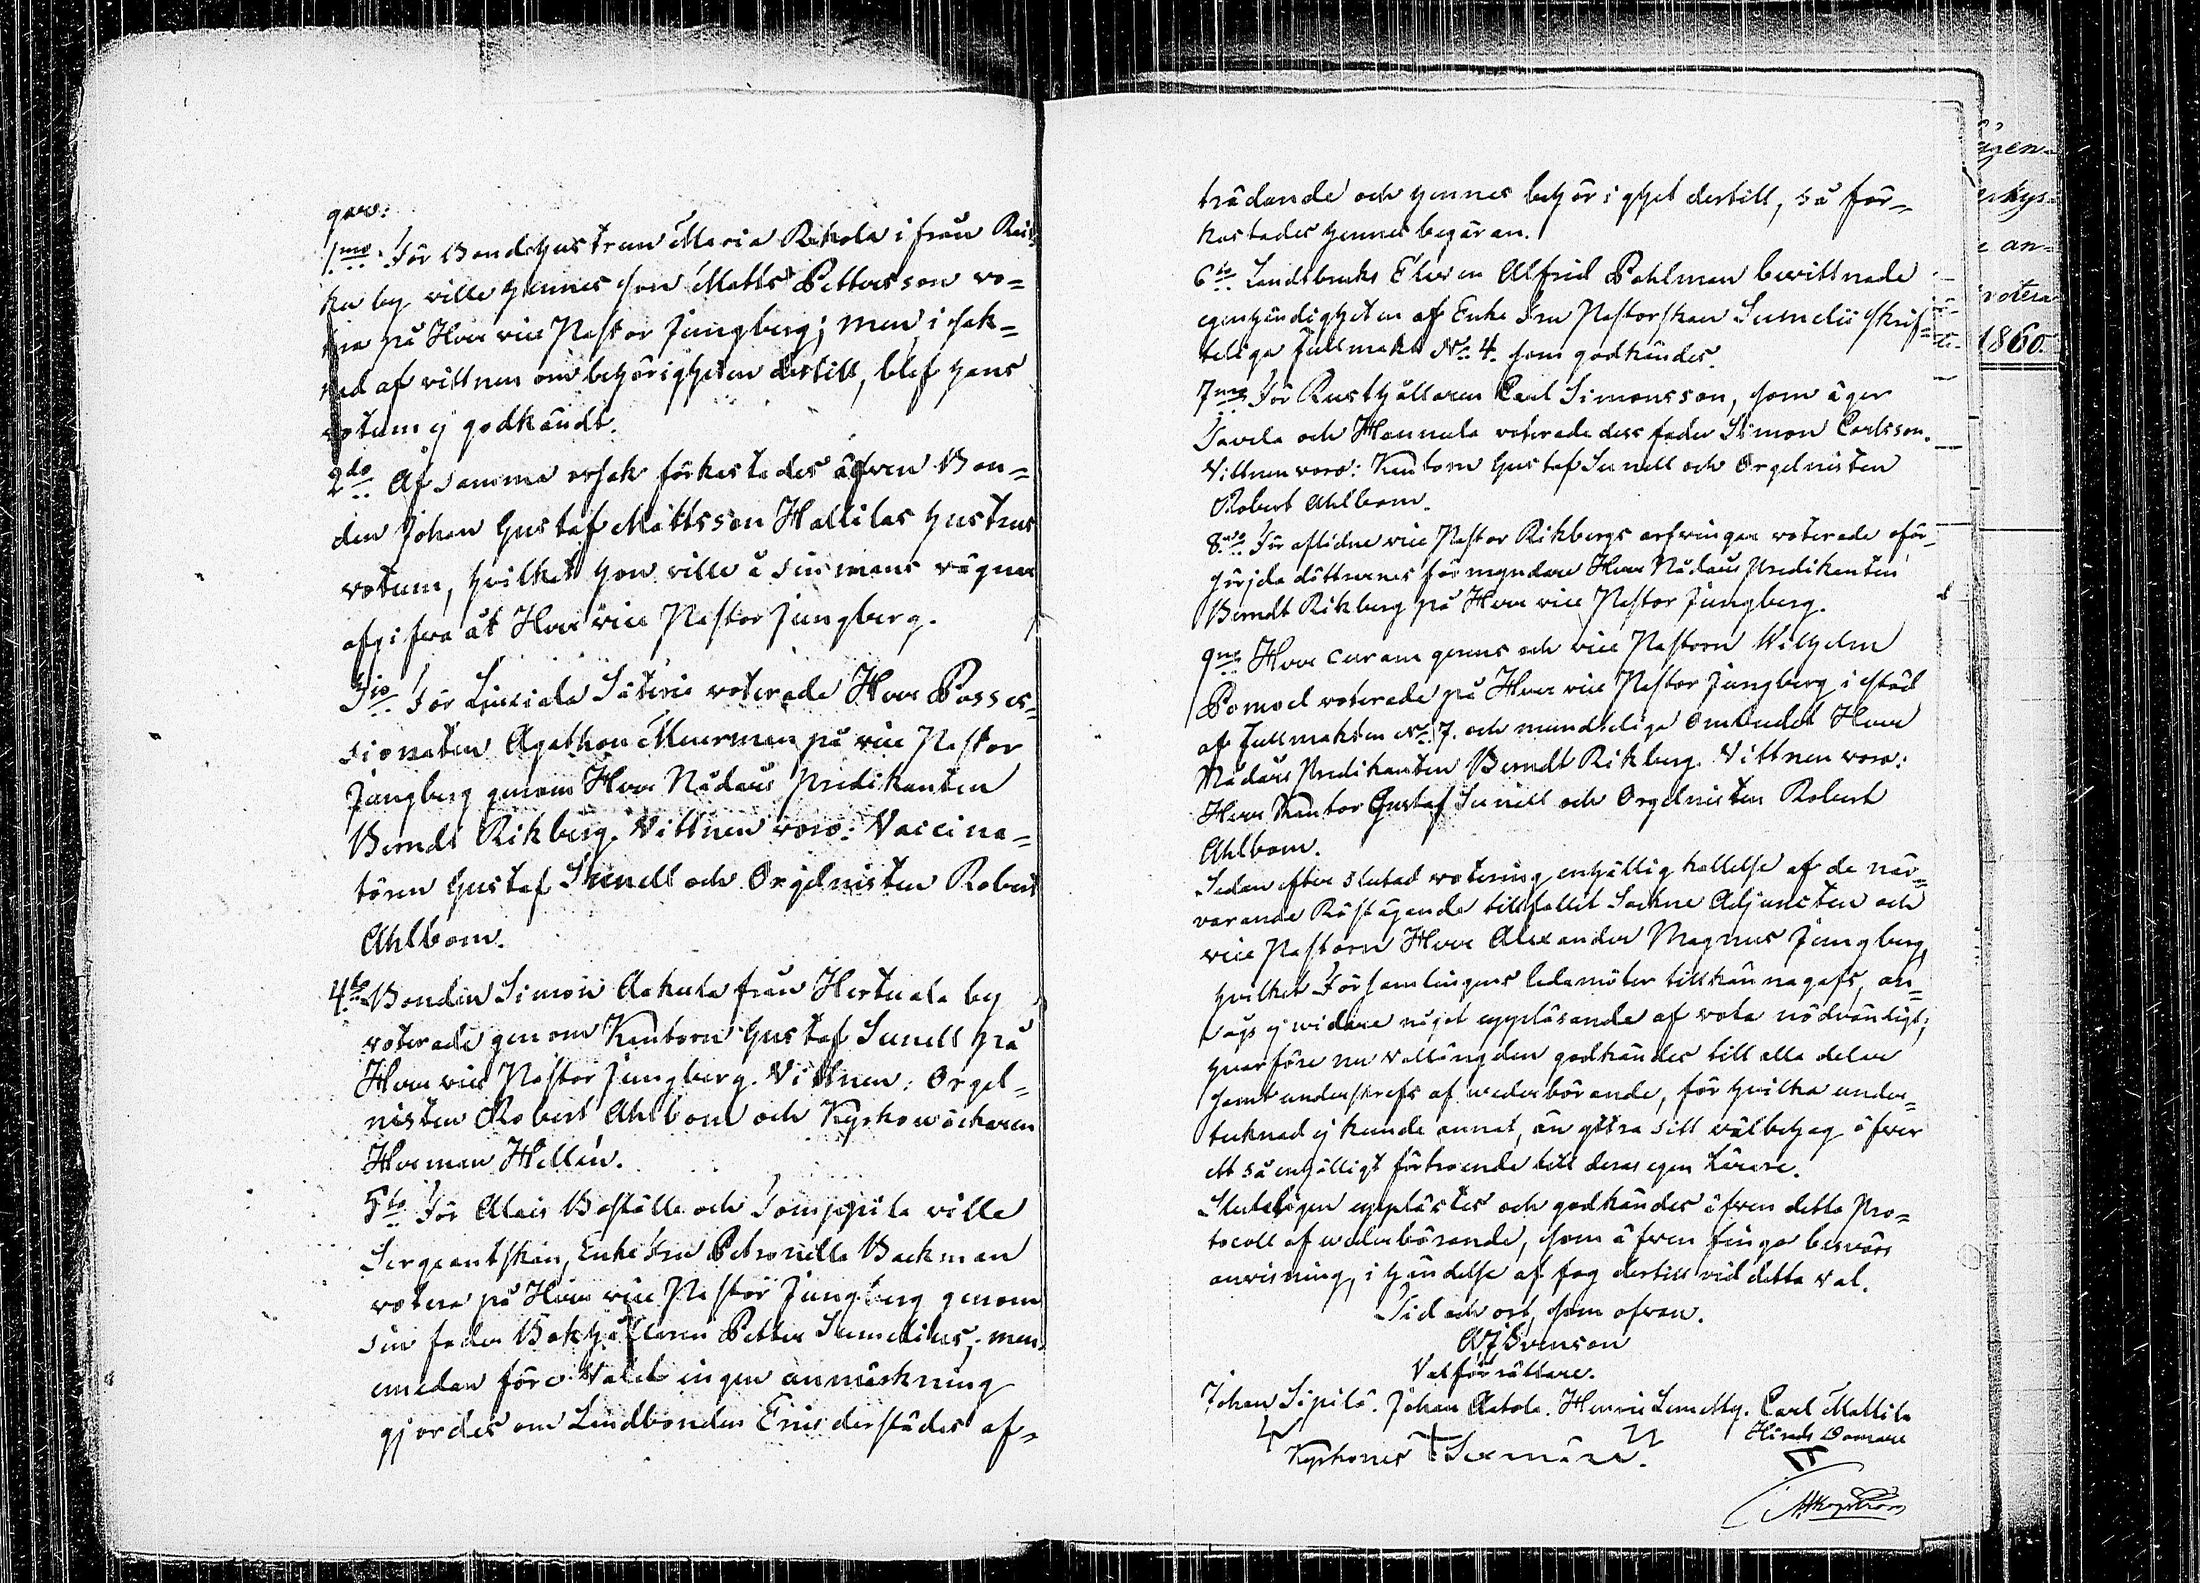 gar:
1mo För Bondehustrun Maria Rekola ifrån Rus
ka by ville hennes son Matts Pettersson vo=
tera på Herr vice Pastor Ljungberg; men i sak=
nad af vittnen om behörigheten dertill, blef hans
votum ej godkändt.
2do Af samma orsak förkastades äfven Bon=
den Johan Gustaf Mattsson Hallilas hustrus
votum, hvilket hon ville å sin mans vägnar
afgifva åt Herr vice Pastor Ljungberg.
3tio För Liuxiala Säterie voterade Herr Posses=
sionaten Agathon Meurman på vice Pastor
Ljungberg genom Herr Nådårs Predikanten
Berndt Rikberg. Vittnen voro: Vaccina=
tören Gustaf Sunell och Orgelnisten Robert
Ahlbom.
4to Bonden Simon Aakula från Hertuala by
voterade genom Kantorn Gustaf Sunell på
Herr vice Pastor Ljungberg. Vittnen: Orgel=
nisten Robert Ahlbom och Kyrkowäcktaren
Herman Hellén.
5to För Alais Boställe och Tomppila ville
Sergeantskan, Enke Fru Petronella Backman
votera på Herr vice Pastor Ljungberg genom
sin fader Bokhållaren Petter Sumelius; men
emedan före Valet ingen anmärkning
gjordes om Landbonden Erics derstädes af=
trädande och hennes behörighet dertill, så för=
kastades hennes begäran.
6to Landtbruks Eleven Alfred Pohlman bevittnade
egenhändigheten af Enke Fru Pastorskan Sumelii skrif=
teliga Fullmakt No 4. som godkändes.
7mo För Rusthållaren Carl Simonsson, som äger
Tavela och Hannula voterade dess fader Simon Carlsson.
Vittnen voro: Kantorn Gustaf Sunell och Orgelnisten
Robert Ahlbom.
8vo För aflidne vice Pastor Rikbergs arfvingar voterade oför=
sörjda döttrarnes förmyndare Herr Nådårs Predikanten
Berndt Rikberg på Herr vice Pastor Ljungberg.
9no Herr curam gerens och vice Pastorn Wilhelm
Pomoel voterade på Herr vice Pastor Ljungberg i stöd
af Fullmakten No 7. och mundteliga Ombudet Herr
Nådårs Predikanten Berndt Rikberg. Vittnen voro:
Herr Kantor Gustaf Sunell och Orgelnisten Robert
Ahlbom.
Sedan efter slutad votering enhällig kallelse af de när=
varande Röstägande tillfallit Sockne Adjuncten och
vice Pastorn Herr Alexander Magnus Ljungberg,
hvilket Församlingens ledamöter tillkännagafs, an=
sågs ej widare något uppläsande af vota nödvändigt;
hvarföre nu vallängden godkändes till alla delar
samt underskrefs af wederbörande, för hvilka under=
tecknad ej kunde annat, än yttra sitt välbehag öfver
ett så enhälligt förtroende till deras egen Lärare.
Sluteligen upplästes och godkändes äfven detta Pro=
tocoll af wederbörande, som äfven fingo besvärs
anvisning, i händelse af fog dertill vid detta val.
Tid och ort, som ofvan.
A J Svenson
Valförrättare.
Johan Sipilä. Johan Aatola. Henric Lemetty. Carl Mattila
Kyrkones Sexmän.
Härads Domare
gen=
e an=
rotera
1860.